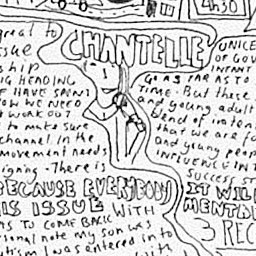 4h30
CHANTELLE
great to
ssue
ship
IG HEADING
F HAVE SPENT
NOW WE NEED
WORK OUT
to make sure
channel. In the
movement needs
igning - There is
BECAUSE EVERYBODY
IS ISSUE WITH
NS TO COME BACK
rsonal note my son was
utism I was entered in to
with
UNICE
OF GOV
INFANT
GO AS FAR AS TO
TIME. But these
and young adult
blend of inten
that we are fo
and young peop
INFLUENCE INT
SUCCESS C
IT WILL
MENTAL
3 REC